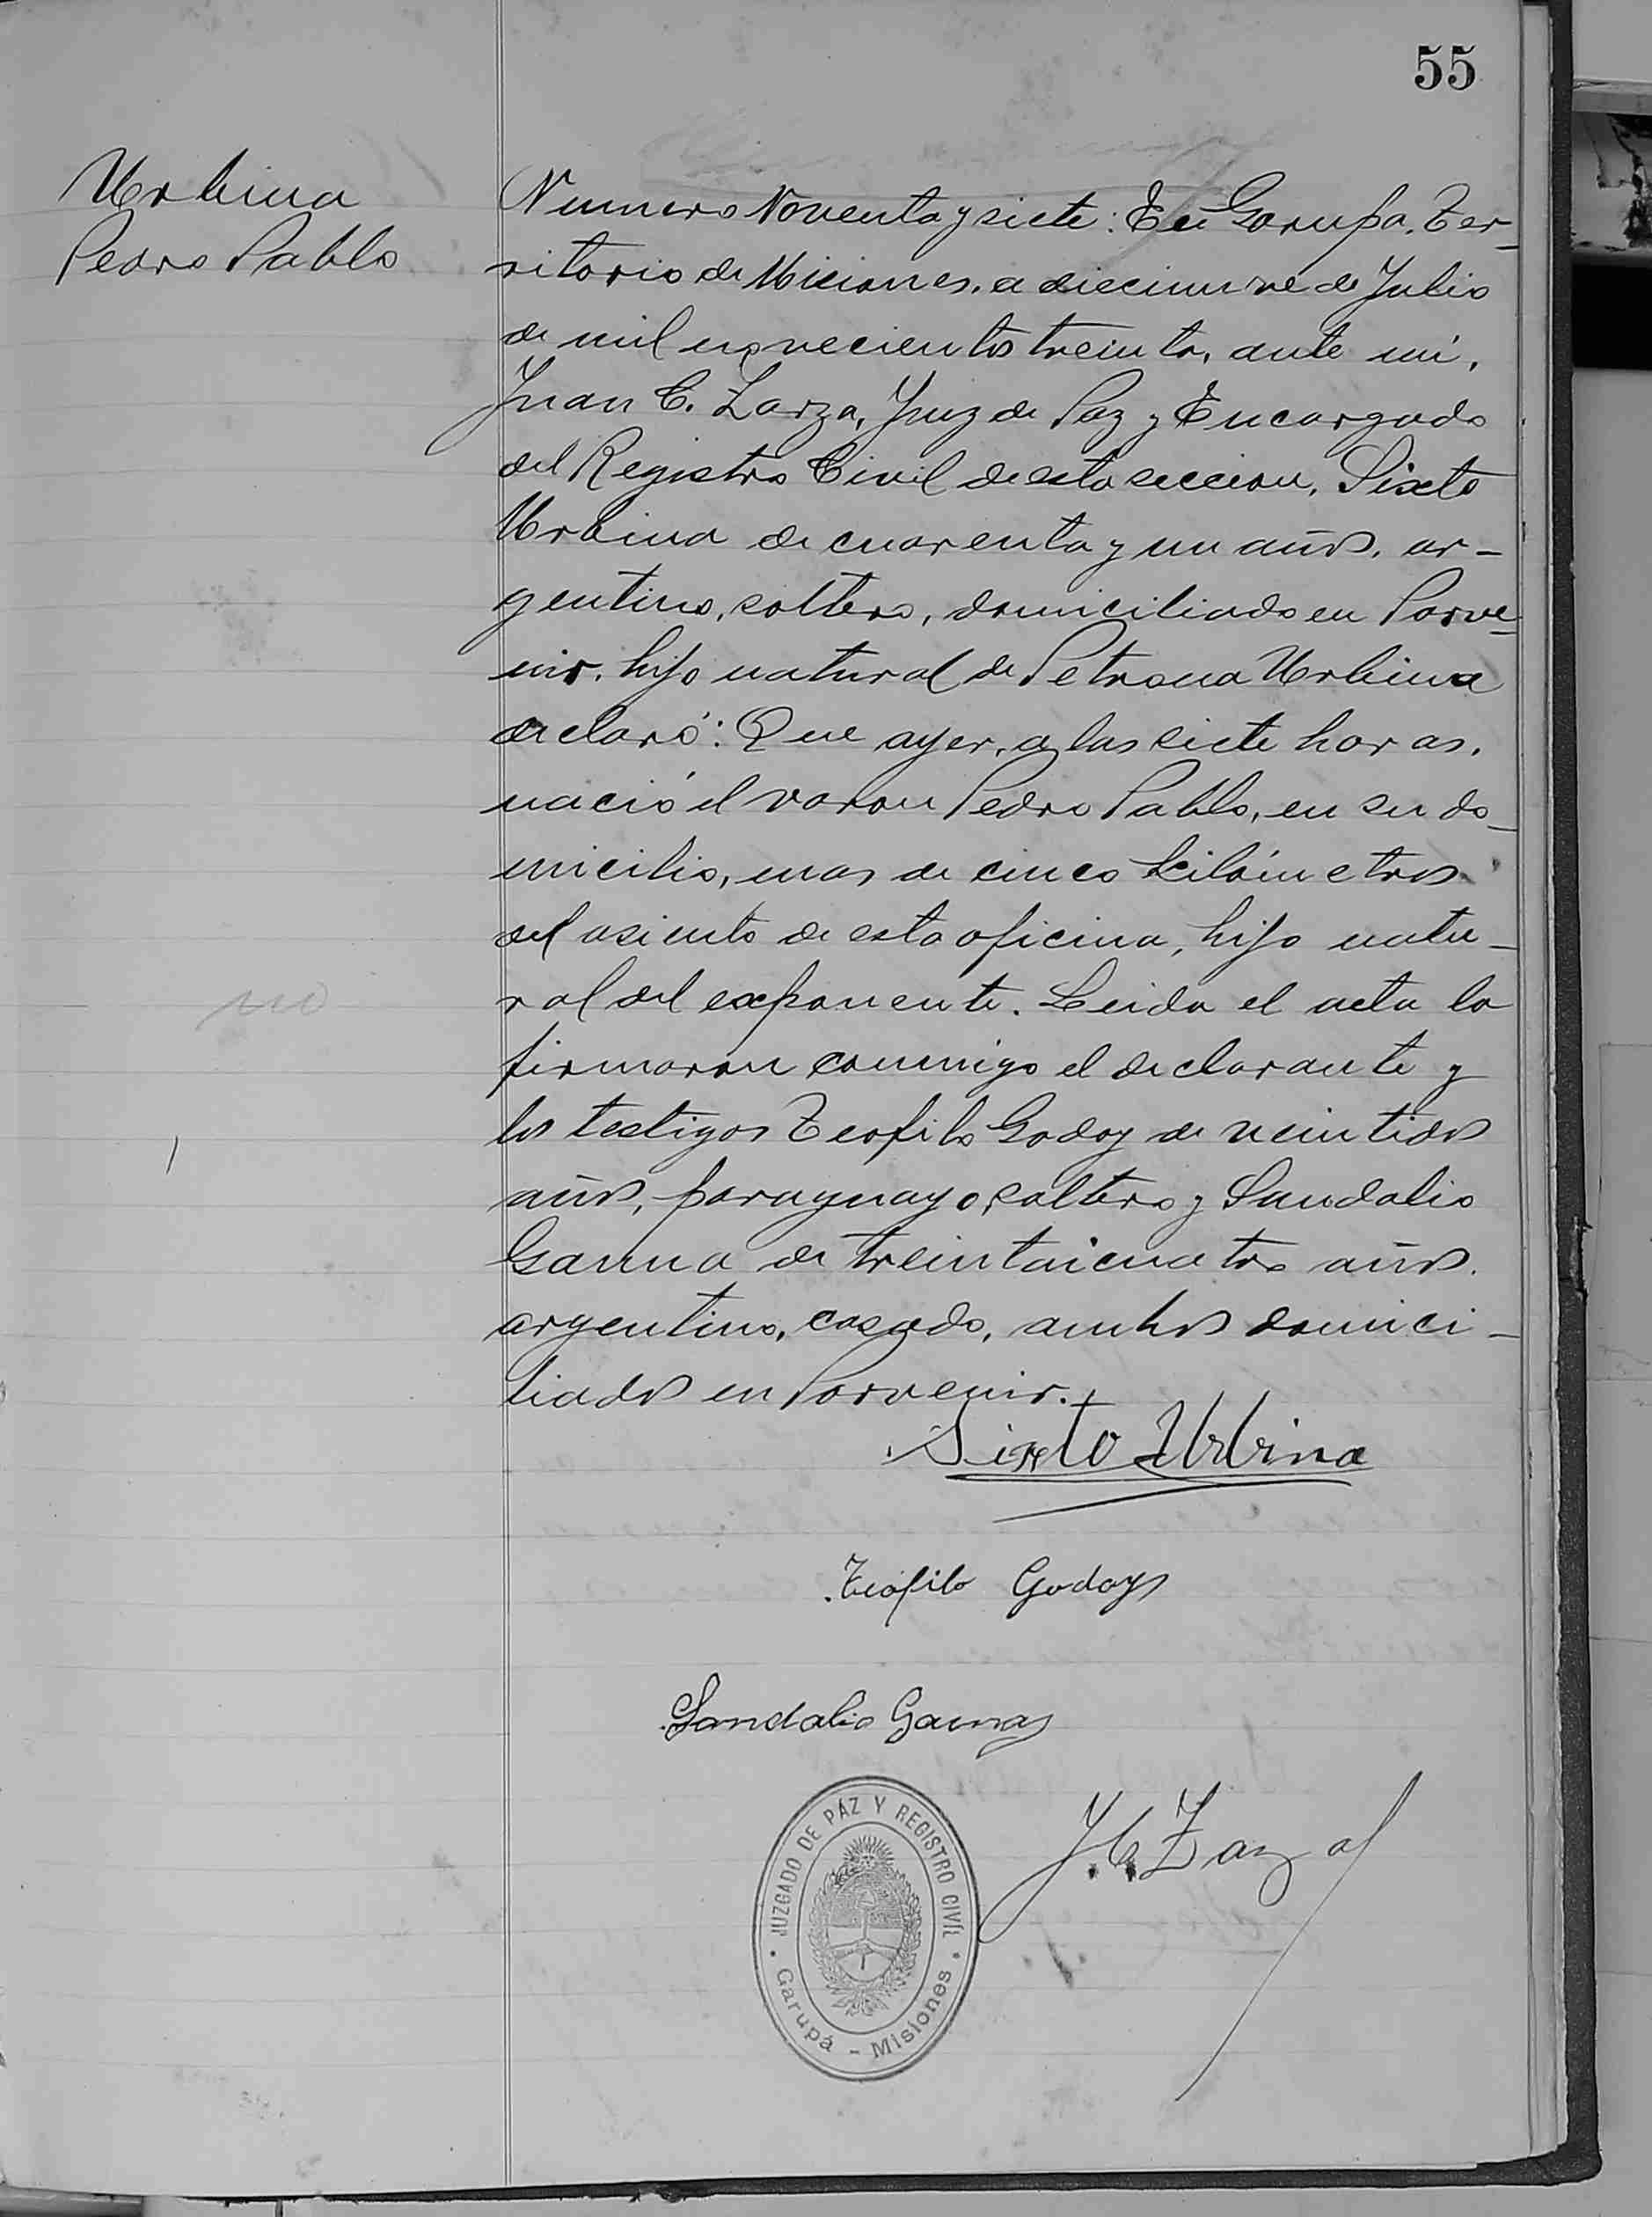 55
Urbina
Pedro Pablo
Numero Noventa y siete: En Garupa, Ter-
ritorio de Misiones, a diecinueve de Julio
de mil novecientos treinta, ante mí,
Juan C. Zarza, Juez de Paz y Encargado
del Registro Civil de esta seccion, Sixto
Urbina de cuarenta y un años, ar-
gentino, soltero, domiciliado en Porve-
nir, hijo natural de Petrona Urbina
declaró: Que ayer, a las siete horas,
nació el varon Pedro Pablo, en su do-
micilio, mas de cinco kilómetros
del asiento de esta oficina, hijo natu-
ral del exponente. Leida el acta la
firmaron conmigo el declarante y
los testigos Teofilo Godoy de veintidos
años, paraguayo, soltero y Sandalio
Gauna de treintaicuatro años,
argentino, casado, ambos domici-
liados en Porvenir.
Sixto Urbina
Teófilo Godoy
Sandalio Gauna
no
J. C. Zarza
JUZGADO DE PAZ Y REGISTRO CIVIL
Garupá - Misiones